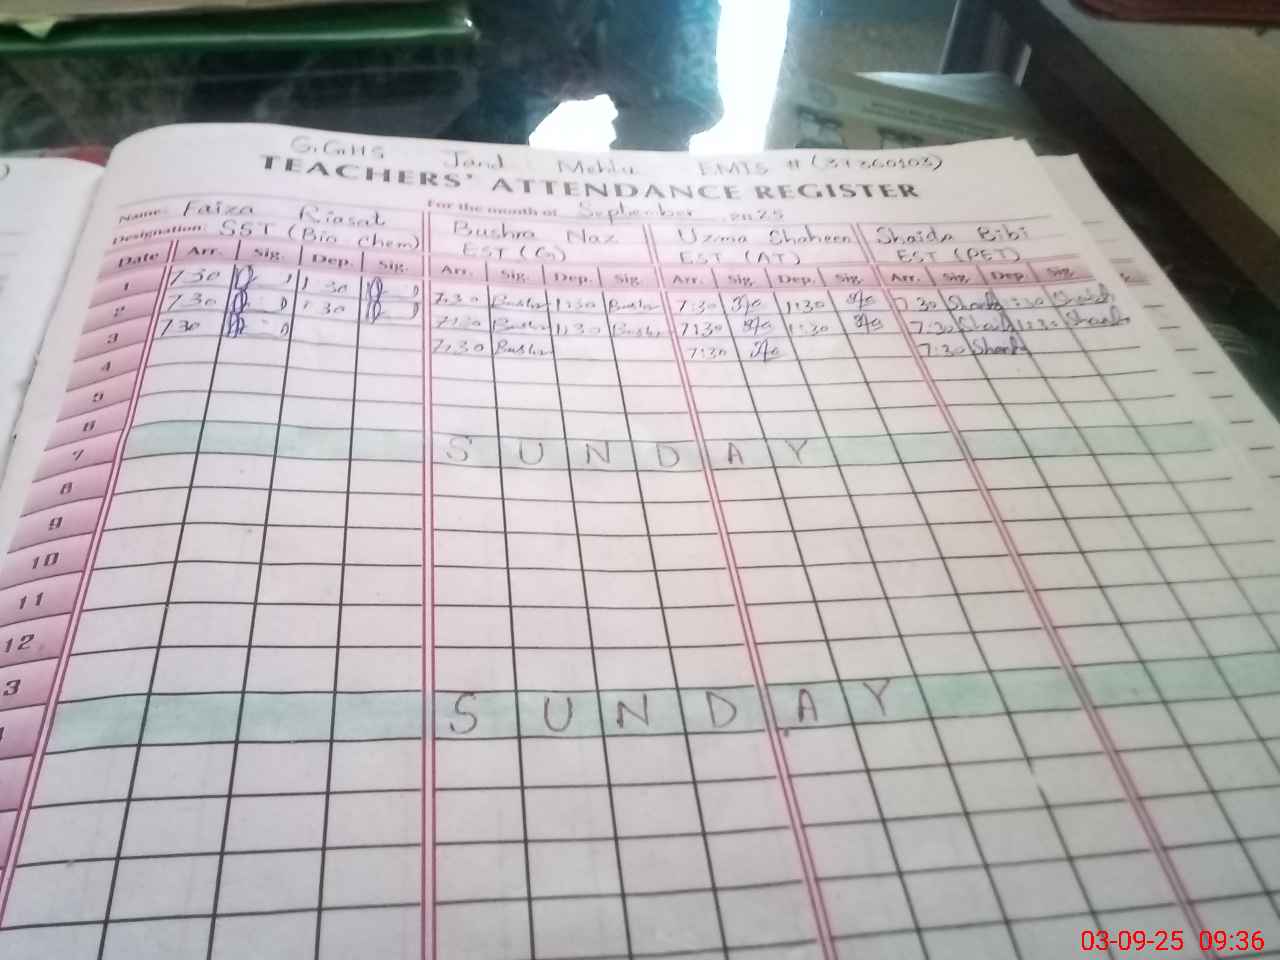 G.GHS Jand Mehlu EMIS # (37360103)
TEACHERS' ATTENDANCE REGISTER
For the month of September 2025
Name: Faiza Riasat Bushra Naz Uzma Shaheen Shaida Bibi
Designation: SST (Bio chem) EST (G) EST (AT) EST (PET)
Date Arr. Sig. Dep. Sig. Arr. Sig. Dep. Sig. Arr. Sig. Dep. Sig. Arr. Sig. Dep. Sig.
1 7 30 1 30 7:30 Bushra 1:30 Bushra 7:30 1:30 7 30
2 7 30 1 30 7:30 Bushra 1:30 Bushra 7:30 1:30 7:30 1:30
3 7 30 7:30 Bushra 7:30 7:30
4
5
6
7 SUNDAY
8
9
10
11
12
3
SUNDAY
03-09-25 09:36